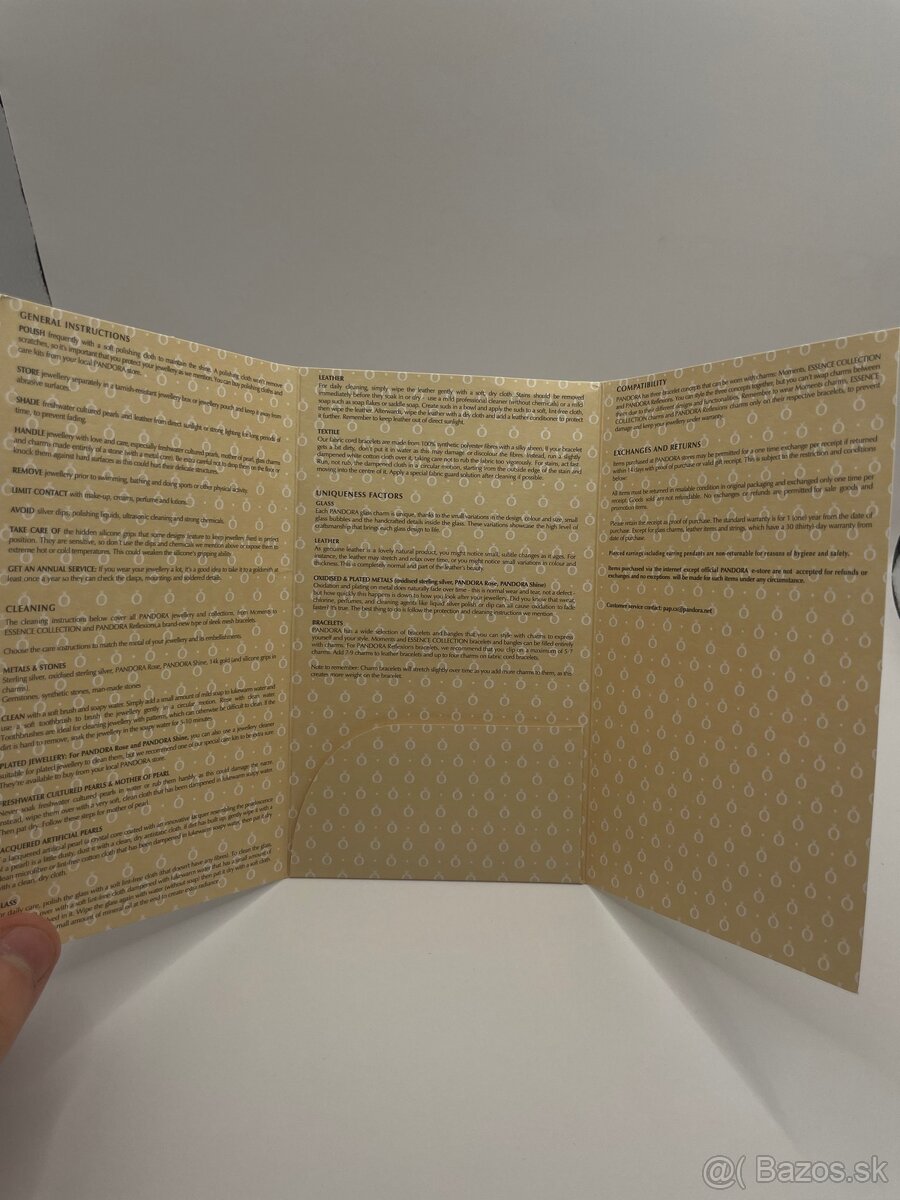 GENERAL INSTRUCTIONS
POLISH frequently with a soft polishing cloth to maintain the shine. A polishing cloth won't remove
scratches, so it's important that you protect your jewellery as we mention. You can buy polishing cloths and
care kits from your local PANDORA store.
STORE jewellery separately in a tarnish-resistant jewellery box or jewellery pouch and keep it away from
abrasive surfaces.
SHADE freshwater cultured pearls and leather from direct sunlight or strong lighting for long periods of
time, to prevent fading.
HANDLE jewellery with love and care, especially freshwater cultured pearls, mother of pearl, glass charms
and charms made entirely of a stone (with a metal core). Be extra careful not to drop them on the floor or
knock them against hard surfaces as this could hurt their delicate structures.
REMOVE jewellery prior to swimming, bathing and doing sports or other physical activity.
LIMIT CONTACT with make-up, creams, perfume and lotions.
AVOID silver dips, polishing liquids, ultrasonic cleaning and strong chemicals.
TAKE CARE OF the hidden silicone grips that some designs feature to keep jewellery fixed in perfect
position. They are sensitive, so don't use the dips and chemicals we mention above or expose them to
extreme hot or cold temperatures. This could weaken the silicone's gripping ability.
GET AN ANNUAL SERVICE: If you wear your jewellery a lot, it's a good idea to take it to a goldsmith at
least once a year so they can check the clasps, mountings and soldered details.
CLEANING
The cleaning instructions below cover all PANDORA jewellery and collections, from Moments to
ESSENCE COLLECTION and PANDORA Reflexions, a brand-new type of sleek mesh bracelets.
Choose the care instructions to match the metal of your jewellery and its embellishments.
METALS & STONES
Sterling silver, oxidised sterling silver, PANDORA Rose, PANDORA Shine, 14k gold (and silicone grips in
charms)
Gemstones, synthetic stones, man-made stones
CLEAN with a soft brush and soapy water. Simply add a small amount of mild soap to lukewarm water and
use a soft toothbrush to brush the jewellery gently in a circular motion. Rinse with clean water.
Toothbrushes are ideal for cleaning jewellery with patterns, which can otherwise be difficult to clean. If the
dirt is hard to remove, soak the jewellery in the soapy water for 5-10 minutes.
PLATED JEWELLERY: For PANDORA Rose and PANDORA Shine, you can also use a jewellery cleaner
suitable for plated jewellery to clean them, but we recommend one of our special care kits to be extra sure.
They're available to buy from your local PANDORA store.
FRESHWATER CULTURED PEARLS & MOTHER OF PEARL
Never soak freshwater cultured pearls in water or rub them harshly as this could damage the nacre.
Instead, wipe them over with a very soft, clean cloth that has been dampened in lukewarm soapy water.
Then pat dry. Follow these steps for mother of pearl.
LACQUERED ARTIFICIAL PEARLS
a lacquered artificial pearl (a crystal core coated with an innovative lacquer resembling the pearlescence
of a pearl) is a little dusty, dust it with a clean, dry antistatic cloth. If dirt has built up, gently wipe it with a
clean microfibre or lint-free cotton cloth that has been dampened in lukewarm soapy water, then pat it dry
with a clean, dry cloth.
LASS
r daily care, polish the glass with a soft lint-free cloth (that doesn't have any fibres). To clean the glass,
over with a soft lint-free cloth dampened with lukewarm water that has a small amount of
lved in it. Wipe the glass again with water (without soap) then pat it dry with a soft cloth.
mall amount of mineral oil at the end to create extra radiance.
LEATHER
For daily cleaning, simply wipe the leather gently with a soft, dry cloth. Stains should be removed
immediately before they soak in or dry - use a mild professional cleaner (without chemicals) or a mild
soap such as soap flakes or saddle soap. Create suds in a bowl and apply the suds to a soft, lint-free cloth,
then wipe the leather. Afterwards, wipe the leather with a dry cloth and add a leather conditioner to protect
it further. Remember to keep leather out of direct sunlight.
TEXTILE
Our fabric cord bracelets are made from 100% synthetic polyester fibres with a silky sheen. If your bracelet
gets a bit dirty, don't put it in water as this may damage or discolour the fibres. Instead, run a slightly
dampened white cotton cloth over it, taking care not to rub the fabric too vigorously. For stains, act fast.
Run, not rub, the dampened cloth in a circular motion, starting from the outside edge of the stain and
moving into the centre of it. Apply a special fabric guard solution after cleaning if possible.
UNIQUENESS FACTORS
GLASS
Each PANDORA glass charm is unique, thanks to the small variations in the design, colour and size, small
glass bubbles and the handcrafted details inside the glass. These variations showcase the high level of
craftsmanship that brings each glass design to life.
LEATHER
As genuine leather is a lovely natural product, you might notice small, subtle changes as it ages. For
instance, the leather may stretch and relax over time, or you might notice small variations in colour and
thickness. This is completely normal and part of the leather's beauty.
OXIDISED & PLATED METALS (oxidised sterling silver, PANDORA Rose, PANDORA Shine)
Oxidation and plating on metal does naturally fade over time - this is normal wear and tear, not a defect -
but how quickly this happens is down to how you look after your jewellery. Did you know that sweat,
chlorine, perfumes, and cleaning agents like liquid silver polish or dip can all cause oxidation to fade
faster? It's true. The best thing to do is follow the protection and cleaning instructions we mention.
BRACELETS
PANDORA has a wide selection of bracelets and bangles that you can style with charms to express
yourself and your style. Moments and ESSENCE COLLECTION bracelets and bangles can be filled entirely
with charms. For PANDORA Reflexions bracelets, we recommend that you clip on a maximum of 5-7
charms. Add 7-9 charms to leather bracelets and up to four charms on fabric cord bracelets.
Note to remember: Charm bracelets will stretch slightly over time as you add more charms to them, as this
creates more weight on the bracelet.
COMPATIBILITY
PANDORA has three bracelet concepts that can be worn with charms: Moments, ESSENCE COLLECTION
and PANDORA Reflexions. You can style the three concepts together, but you can't swap charms between
them due to their different designs and functionalities. Remember to wear Moments charms, ESSENCE
COLLECTION charms and PANDORA Reflexions charms only on their respective bracelets, to prevent
damage and keep your jewellery under warranty.
EXCHANGES AND RETURNS
Items purchased at PANDORA stores may be permitted for a one time exchange per receipt if returned
within 14 days with proof of purchase or valid gift receipt. This is subject to the restriction and conditions
below:
All items must be returned in resalable condition in original packaging and exchanged only one time per
receipt. Goods sold are not refundable. No exchanges or refunds are permitted for sale goods and
promotion items.
Please retain the receipt as proof of purchase. The standard warranty is for 1 (one) year from the date of
purchase. Except for glass charms, leather items and strings, which have a 30 (thirty)-day warranty from
date of purchase.
Pierced earrings including earring pendants are non-returnable for reasons of hygiene and safety.
Items purchased via the internet except official PANDORA e-store are not accepted for refunds or
exchanges and no exceptions will be made for such items under any circumstance.
Customer service contact: pap.cs@pandora.net
@( Bazos.sk